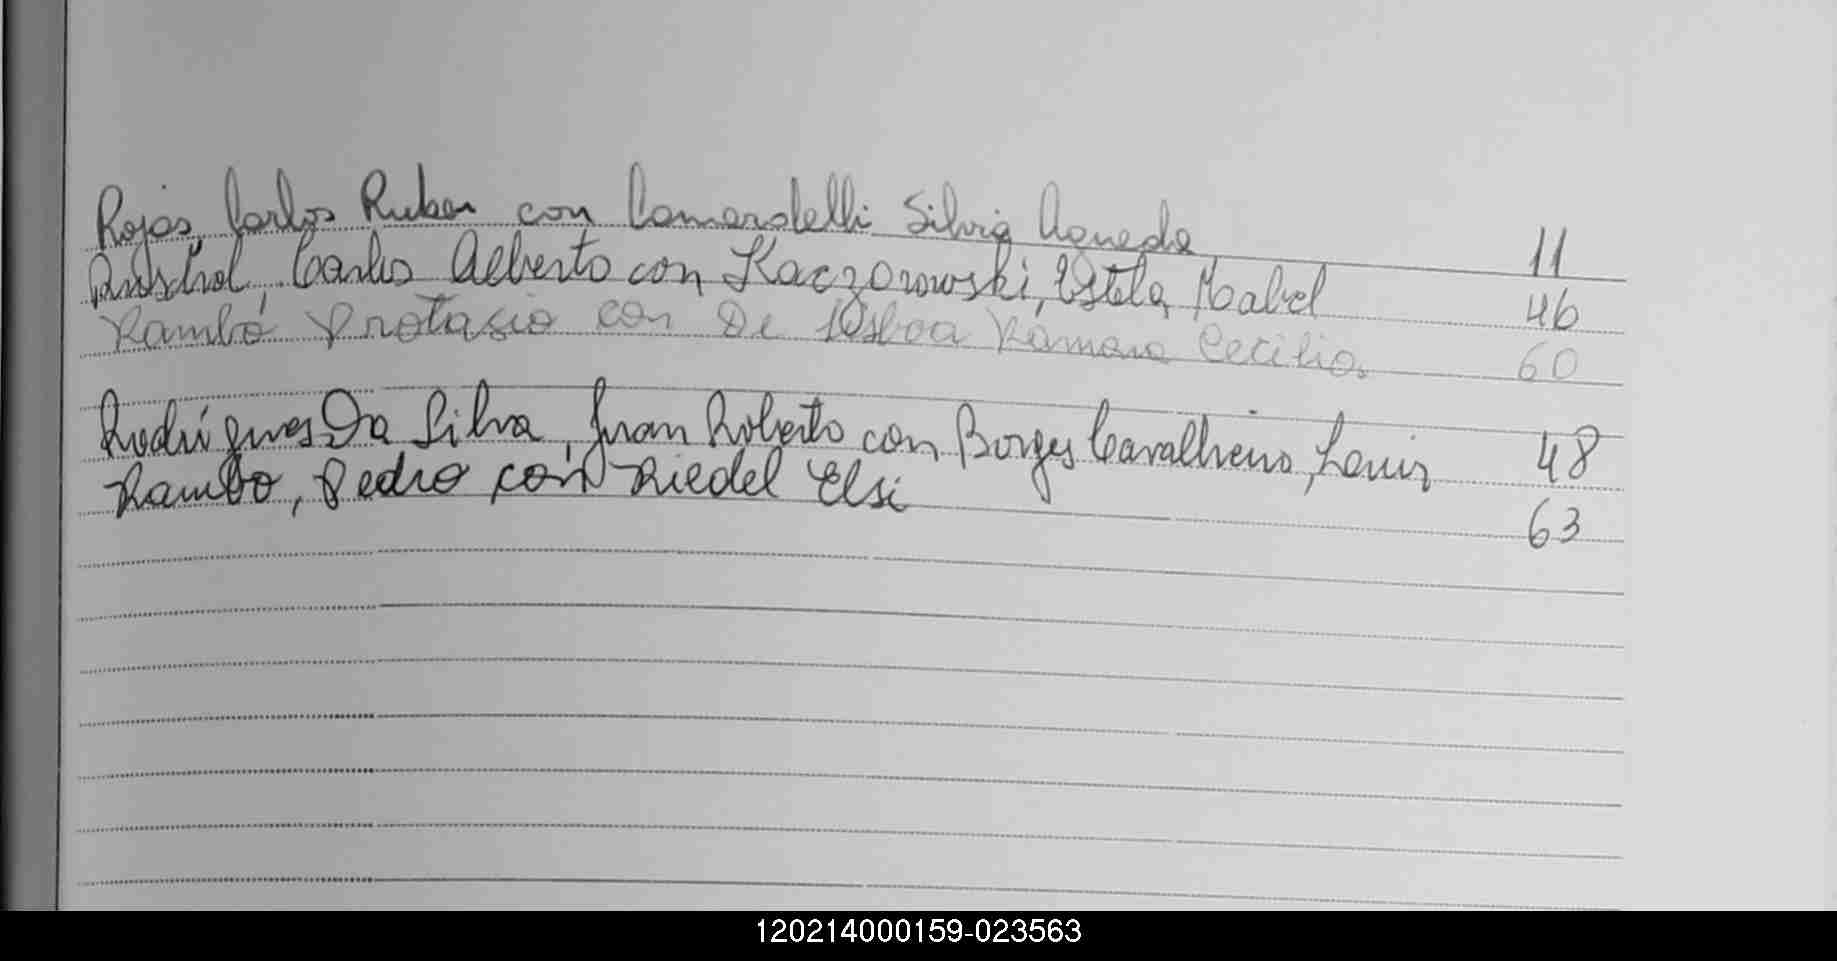 Rojas, Carlos Ruben con Camardelli Silvia Agueda 11
Ruschel, Carlos Alberto con Kaczorowski, Estela Mabel 46
Rambo Protasio con De Lisboa Ramona Cecilia. 60
Rodrigues Da Silva, Juan Roberto con Borges Cavalheiro, 48
Rambo, Pedro con Riedel Elsi 63
120214000159-023563